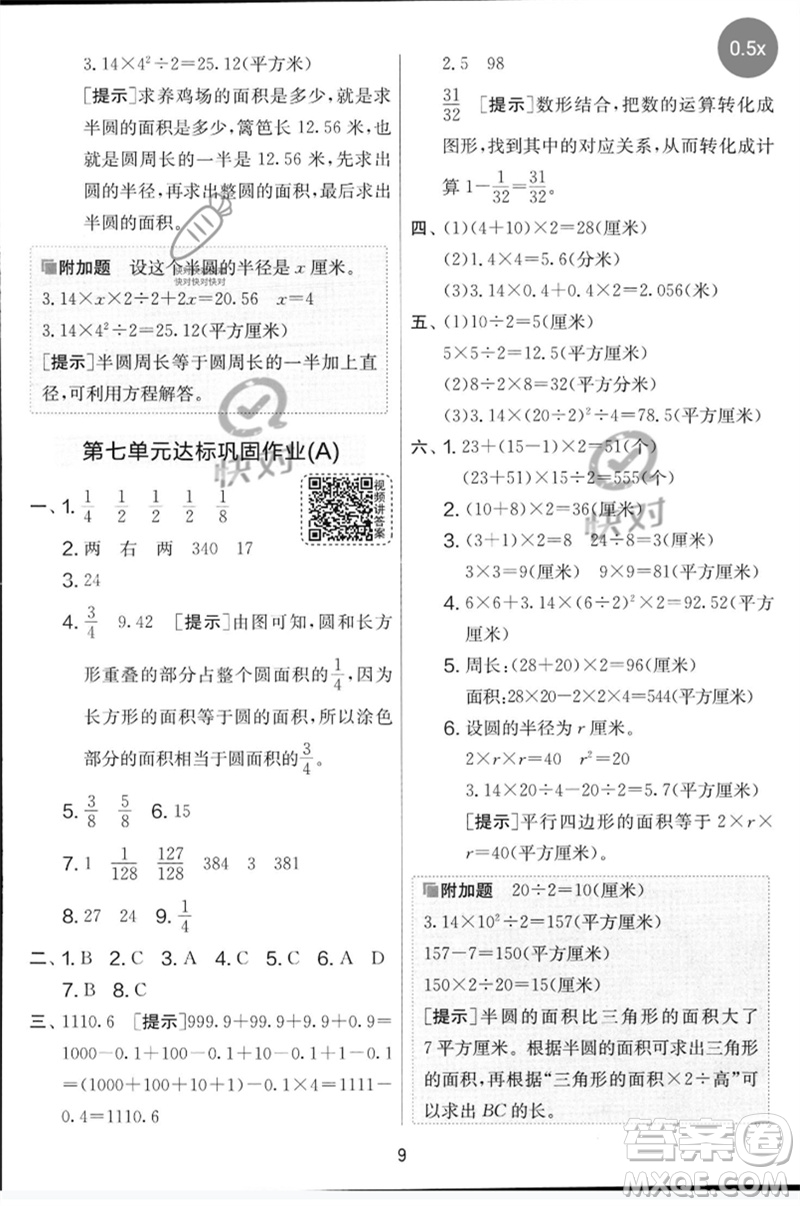 3.14×4²÷2=25.12(平方米)
[提示]求养鸡场的面积是多少,就是求
半圆的面积是多少,篱笆长 12.56 米,
也就是圆周长的一半是 12.56 米,先求出
圆的半径,再求出整圆的面积,最后求出
半圆的面积。
附加题 设这个半圆的半径是 x 厘米。
3.14×x×2÷2+2x=20.56 x=4
3.14×4²÷2=25.12(平方厘米)
[提示]半圆周长等于圆周长的一半加上直
径,可利用方程解答。
第七单元达标巩固作业(A)
一、1. 1/4 1/2 1/2 1/2 1/8
视频讲答案
2. 两 右 两 340 17
3. 24
4. 3/4 9.42 [提示]由图可知,圆和长方
形重叠的部分占整个圆面积的1/4,因为
长方形的面积等于圆的面积,所以涂色
部分的面积相当于圆面积的3/4。
5. 3/8 5/8 6. 15
7. 1 1/128 127/128 384 3 381
8. 27 24 9. 1/4
二、1. B 2. C 3. A 4. C 5. C 6. A D
7. B 8. C
三、1110.6 [提示]999.9+99.9+9.9+0.9=
1000-0.1+100-0.1+10-0.1+1-0.1
=(1000+100+10+1)-0.1×4=1111-
0.4=1110.6
2. 5 98
31/32 [提示]数形结合,把数的运算转化成
图形,找到其中的对应关系,从而转化成计
算 1-1/32=31/32。
四、(1)(4+10)×2=28(厘米)
(2)1.4×4=5.6(分米)
(3)3.14×0.4+0.4×2=2.056(米)
五、(1)10÷2=5(厘米)
5×5÷2=12.5(平方厘米)
(2)8×8÷2=32(平方分米)
(3)3.14×(20÷2)²÷4=78.5(平方厘米)
六、1. 23+(15-1)×2=51(个)
(23+51)×15÷2=555(个)
2. (10+8)×2=36(厘米)
3. (3+1)×2=8 24÷8=3(厘米)
3×3=9(厘米) 9×9=81(平方厘米)
4. 6×6+3.14×(6÷2)²×2=92.52(平方
厘米)
5. 周长:(28+20)×2=96(厘米)
面积:28×20-2×4×2=544(平方厘米)
6. 设圆的半径为 r 厘米。
2×r×r=40 r²=20
3.14×20÷4-20÷2=5.7(平方厘米)
[提示]平行四边形的面积等于 2×r×
r=40(平方厘米)。
附加题 20÷2=10(厘米)
3.14×10²÷2=157(平方厘米)
157-7=150(平方厘米)
150×2÷20=15(厘米)
[提示]半圆的面积比三角形的面积大了
7 平方厘米。根据半圆可求出三角形
的面积,再根据“三角形的面积×2÷高”可
以求出 BC 的长。
9
0.5x
快对快对快对
快对快对快对
快对
快对
答案圈
MXQE.COM